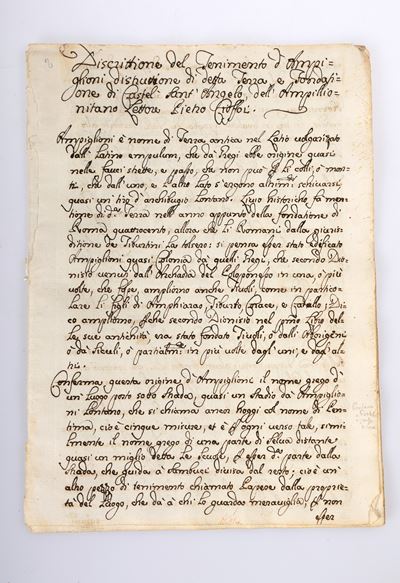 Discrittione del Tenimento d'Ampi-
glioni distrutione di detta Terra, e fondati-
one di Castel Sant'Angelo, dell'Ampillio-
nitano Lettore Pietro Coffoi.
Ampiglioni è nome di Terra antica nel Latio vulgarizato
dall Latino empulum, che da Regi ebbe origine quasi
nelle fauci strette, e passo, che non può p li colli, o mon-
ti, che dall'uno, e l'altro lato s'ergono altrim.te schivarsi
quasi un tiro d'archibugio lontano. Livio historico fa men-
tione di d.ta Terra nell'anno appunto della fondatione di
Roma quattrocento, allora che li Romani dalla giuris-
ditione de Tiburtini la tolsero: si pensa esser stato edificato
Ampiglioni quasi Colonia da quelli Regi, che secondo Dio-
nisio venuti dall'Archadia del Peloponesso in una, o più
volte, che fosse, ampliorno anche Tivoli, come in partico-
lare li figli di Amphiarao Tiburto, Corace, e Catallo; Di-
co ampliorno, perche secondo Dionisio nel primo libro delle
sue antichità era stato fondato Tivoli, o dalli Aborigeni
o da Siculi, o partiatam.te in più volte dagl'uni, e dagl'al-
tri.
Conferma questa origine d'Ampiglioni il nome grego di
un Luogo posto sotto strada, quasi un stadio da Ampiglio-
ni lontano, che si chiama anco hoggi col nome di Pen-
tima, cioè cinque misure, et è p ogni verso tale, simil-
mente il nome grego di una parte di selva distante
quasi un miglio detta Le Scuse, p esser d.ta parte dalla
strada, che guida a Sambuci divisa dal resto; cioè un
altro pezzo di tenimento chiamato Lapese dalla proprie-
tà del Luogo, che dà à chi lo guarda meraviglia; p non
esser